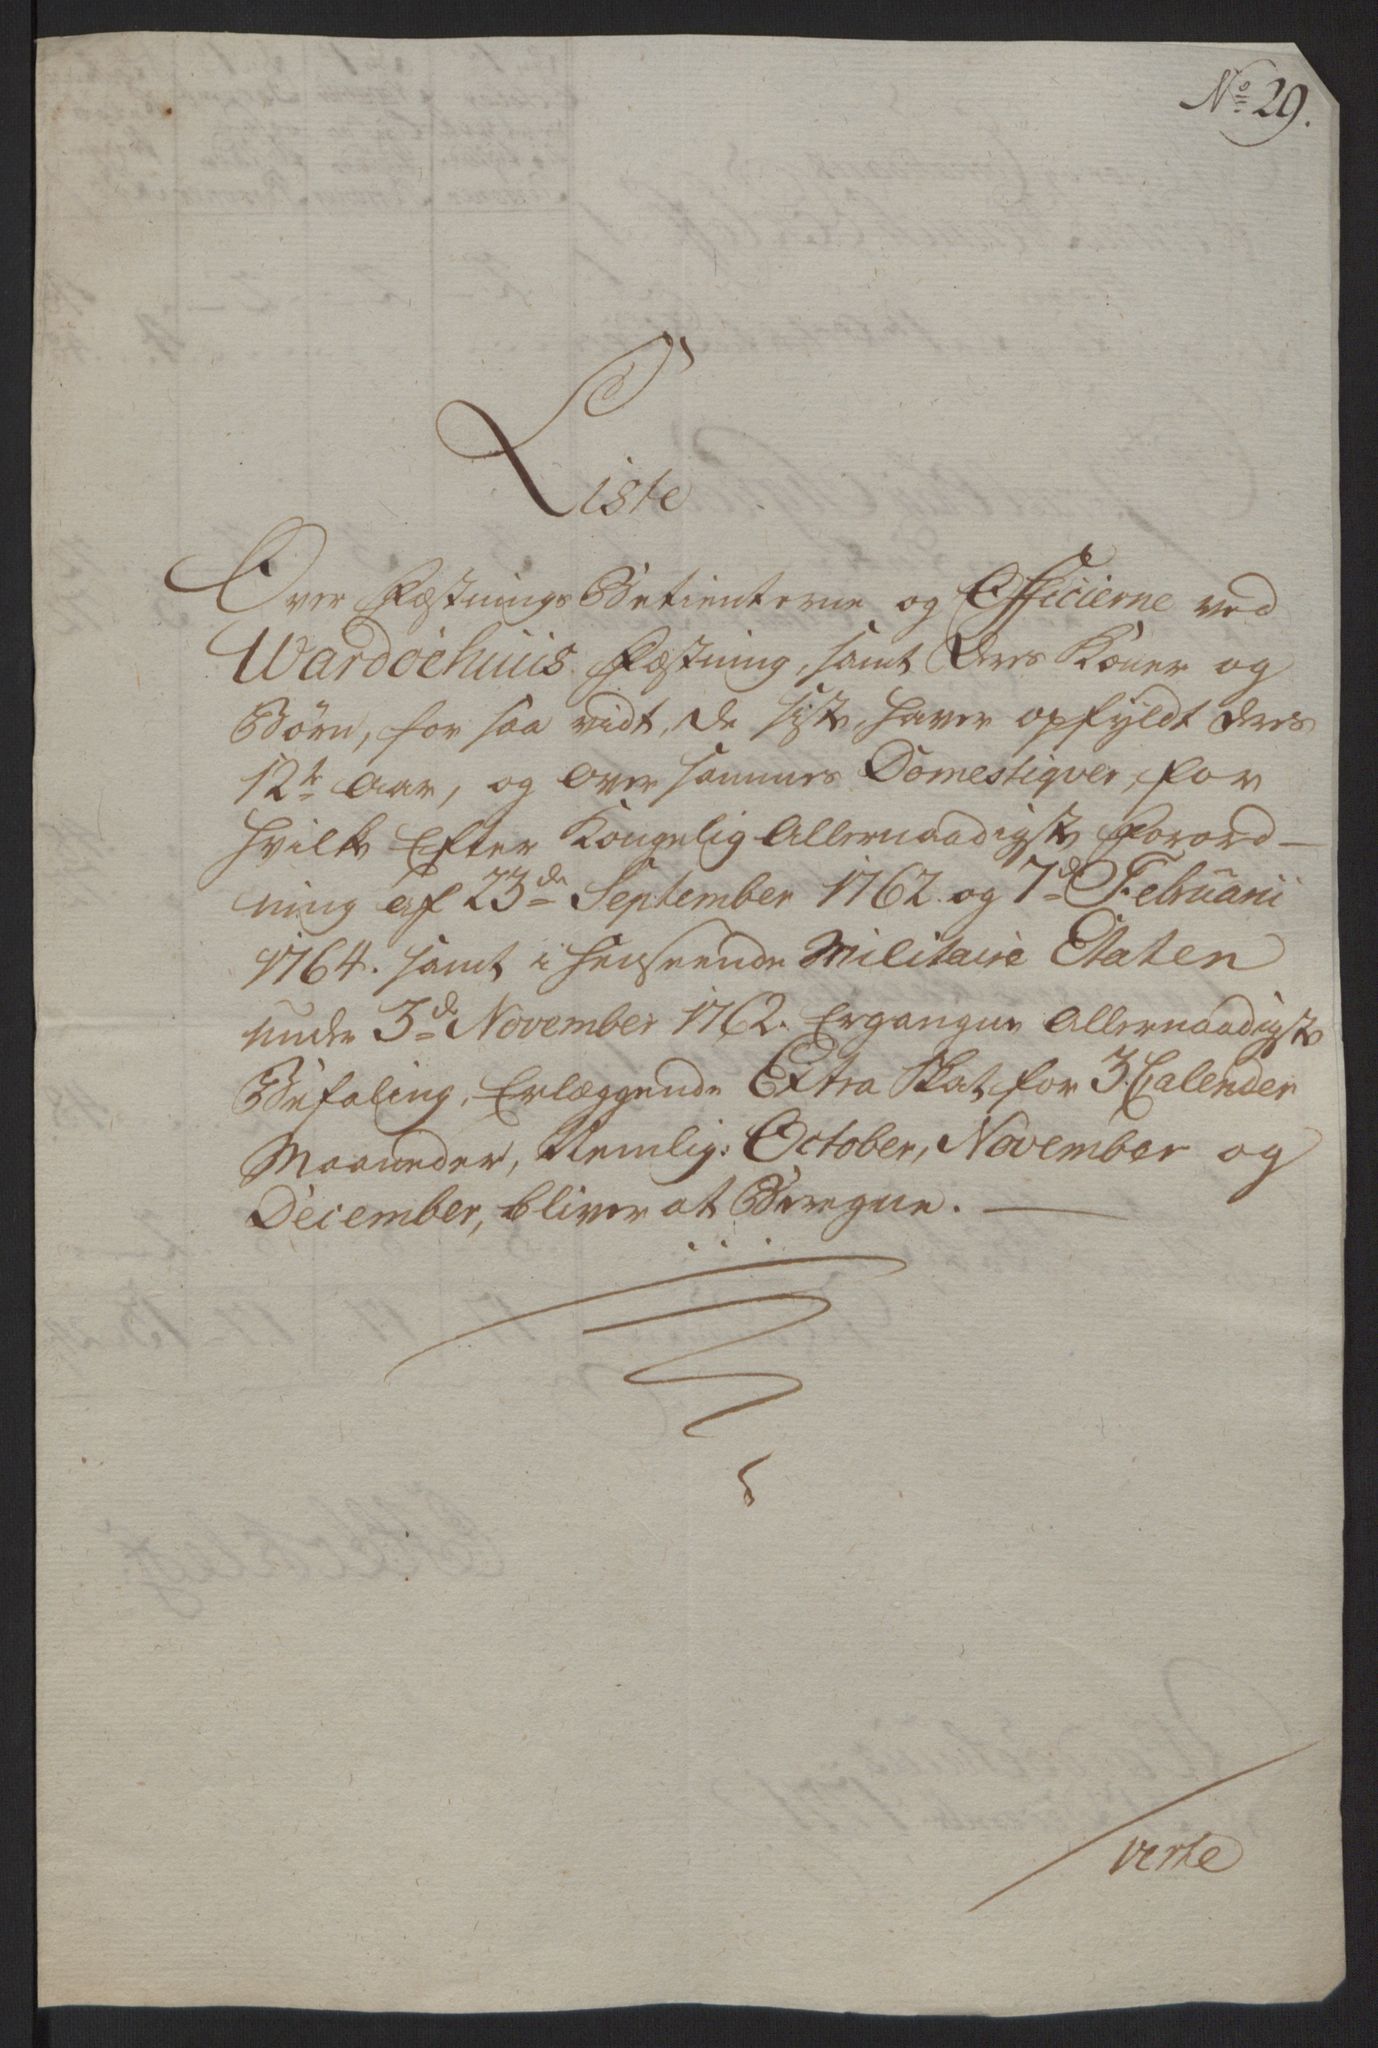 No 29.
Liste
Over Fæstnings Betienterne og Officierne ved
Wardöehuus Fæstning, samt deres Koner og
Börn, for saa vidt, de siste, haver opfyldt deres
12te Aar, og over sammes Domestiqver, for
hvilke Efter Kongelig Allernaadigste Forord-
ning af 23de September 1762. og 7de Februarii
1764. samt i henseende Militaire Etaten
under 3de November 1762. Ergangne Allernaadigste
Befaling, Erlæggende Extra Skat for 3 Calender
Maaneder, Nemlig: October, November og
December, bliver at Beregne.
verte